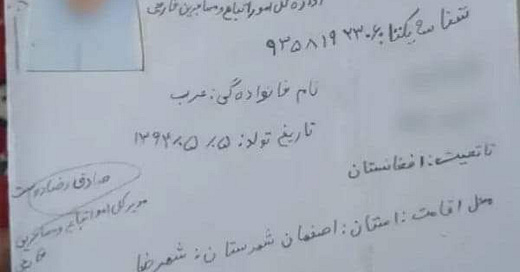 اداره کل امور اتباع و مهاجرین خارجی
شناسه یکتا: ۹۳۵۸۱۹۲۳۰۶
نام خانوادگی: عرب
تاریخ تولد: ۱۳۹۴/۰۵/۰۵
تابعیت: افغانستان
محل اقامت: استان: اصفهان شهرستان: شهرضا
مدیر کل امور اتباع و مهاجرین